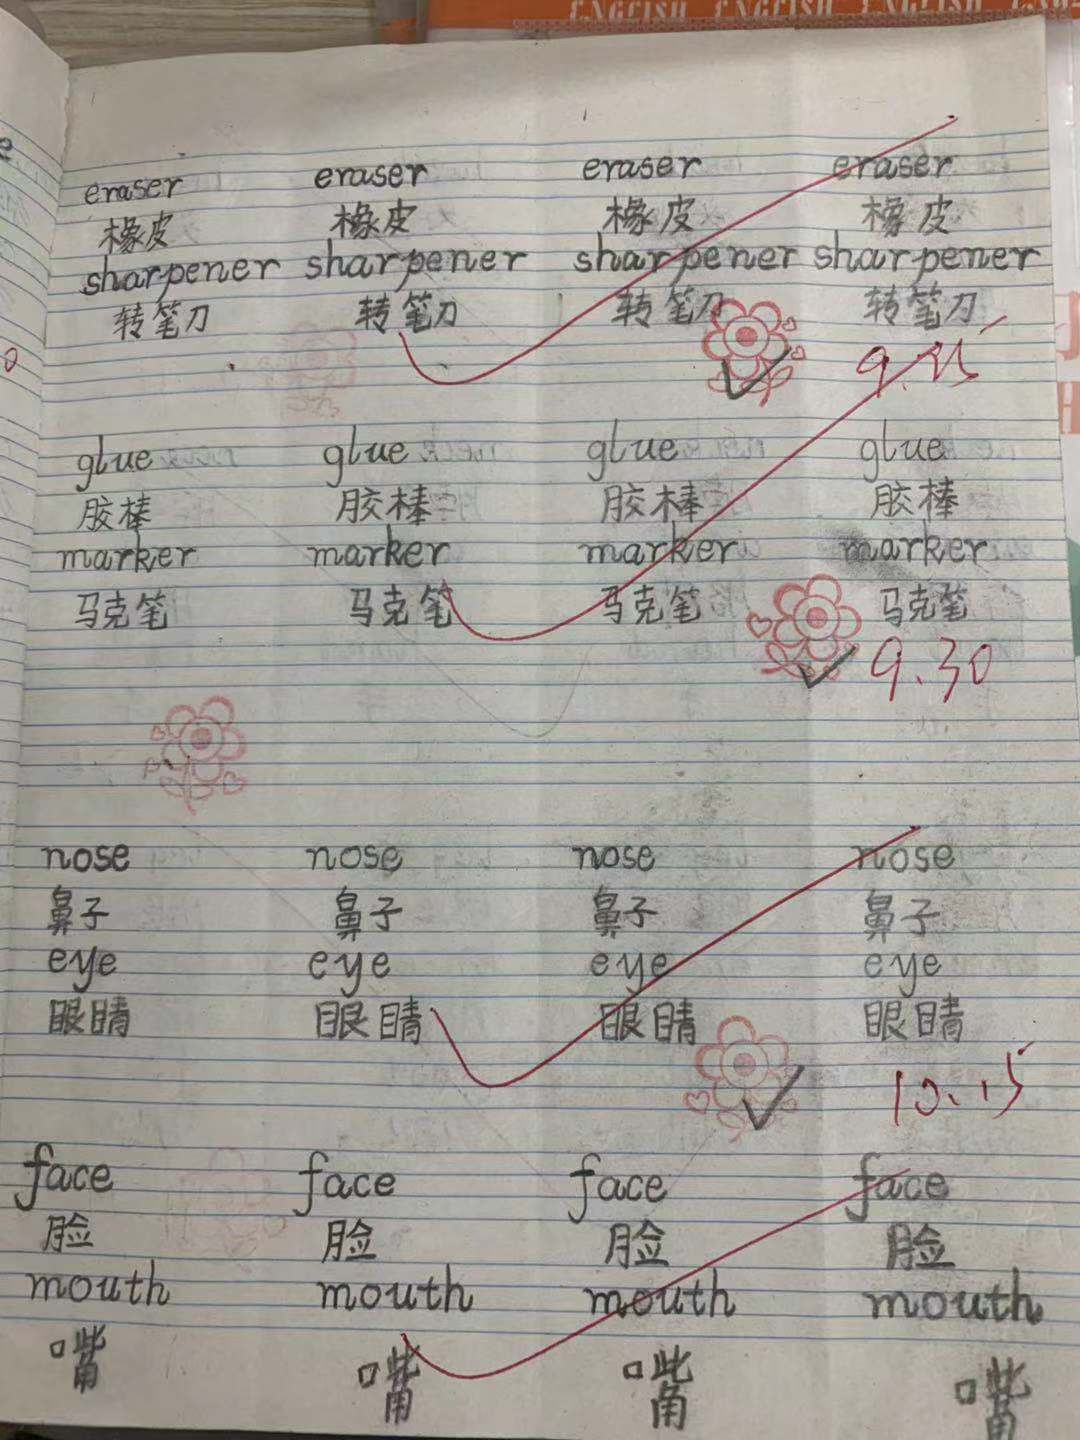 ENGLISH ENGLISH ENGLISH
eraser eraser eraser eraser
橡皮 橡皮 橡皮 橡皮
sharpener sharpener sharpener sharpener
转笔刀 转笔刀 转笔刀 转笔刀
glue glue glue glue
胶棒 胶棒 胶棒 胶棒
marker marker marker marker
马克笔 马克笔 马克笔 马克笔
9.30
nose nose nose nose
鼻子 鼻子 鼻子 鼻子
eye eye eye eye
眼睛 眼睛 眼睛 眼睛
10.15
face face face face
脸 脸 脸 脸
mouth mouth mouth mouth
嘴 嘴 嘴 嘴